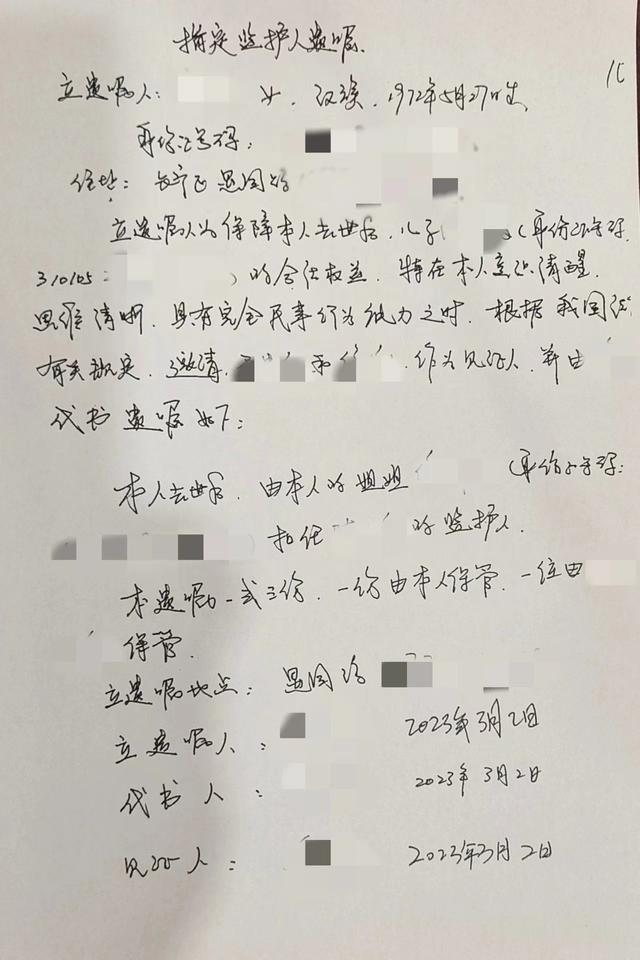 指定监护人遗嘱
立遗嘱人: 女、汉族、1972年5月27日生、
身份证号码:
住址: 长宁区 恩园路
立遗嘱人为保障本人去世后, 儿子 (身份证号码:
310105 ) 的合法权益, 特在本人意识清醒、
思维清晰、具有完全民事行为能力之时, 根据我国法
有关规定, 邀请 和 作为见证人, 并由
代书遗嘱如下:
本人去世后, 由本人的姐姐 (身份证号码:
担任 的监护人.
本遗嘱一式三份, 一份由本人保管, 一位由
保管.
立遗嘱地点: 恩园路
立遗嘱人: 2023年3月2日
代书人: 2023年3月2日
见证人: 2023年3月2日